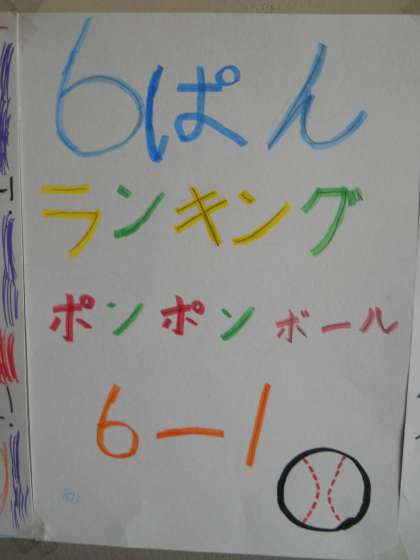 6ぱん
ランキング
ポンポンボール
6-1